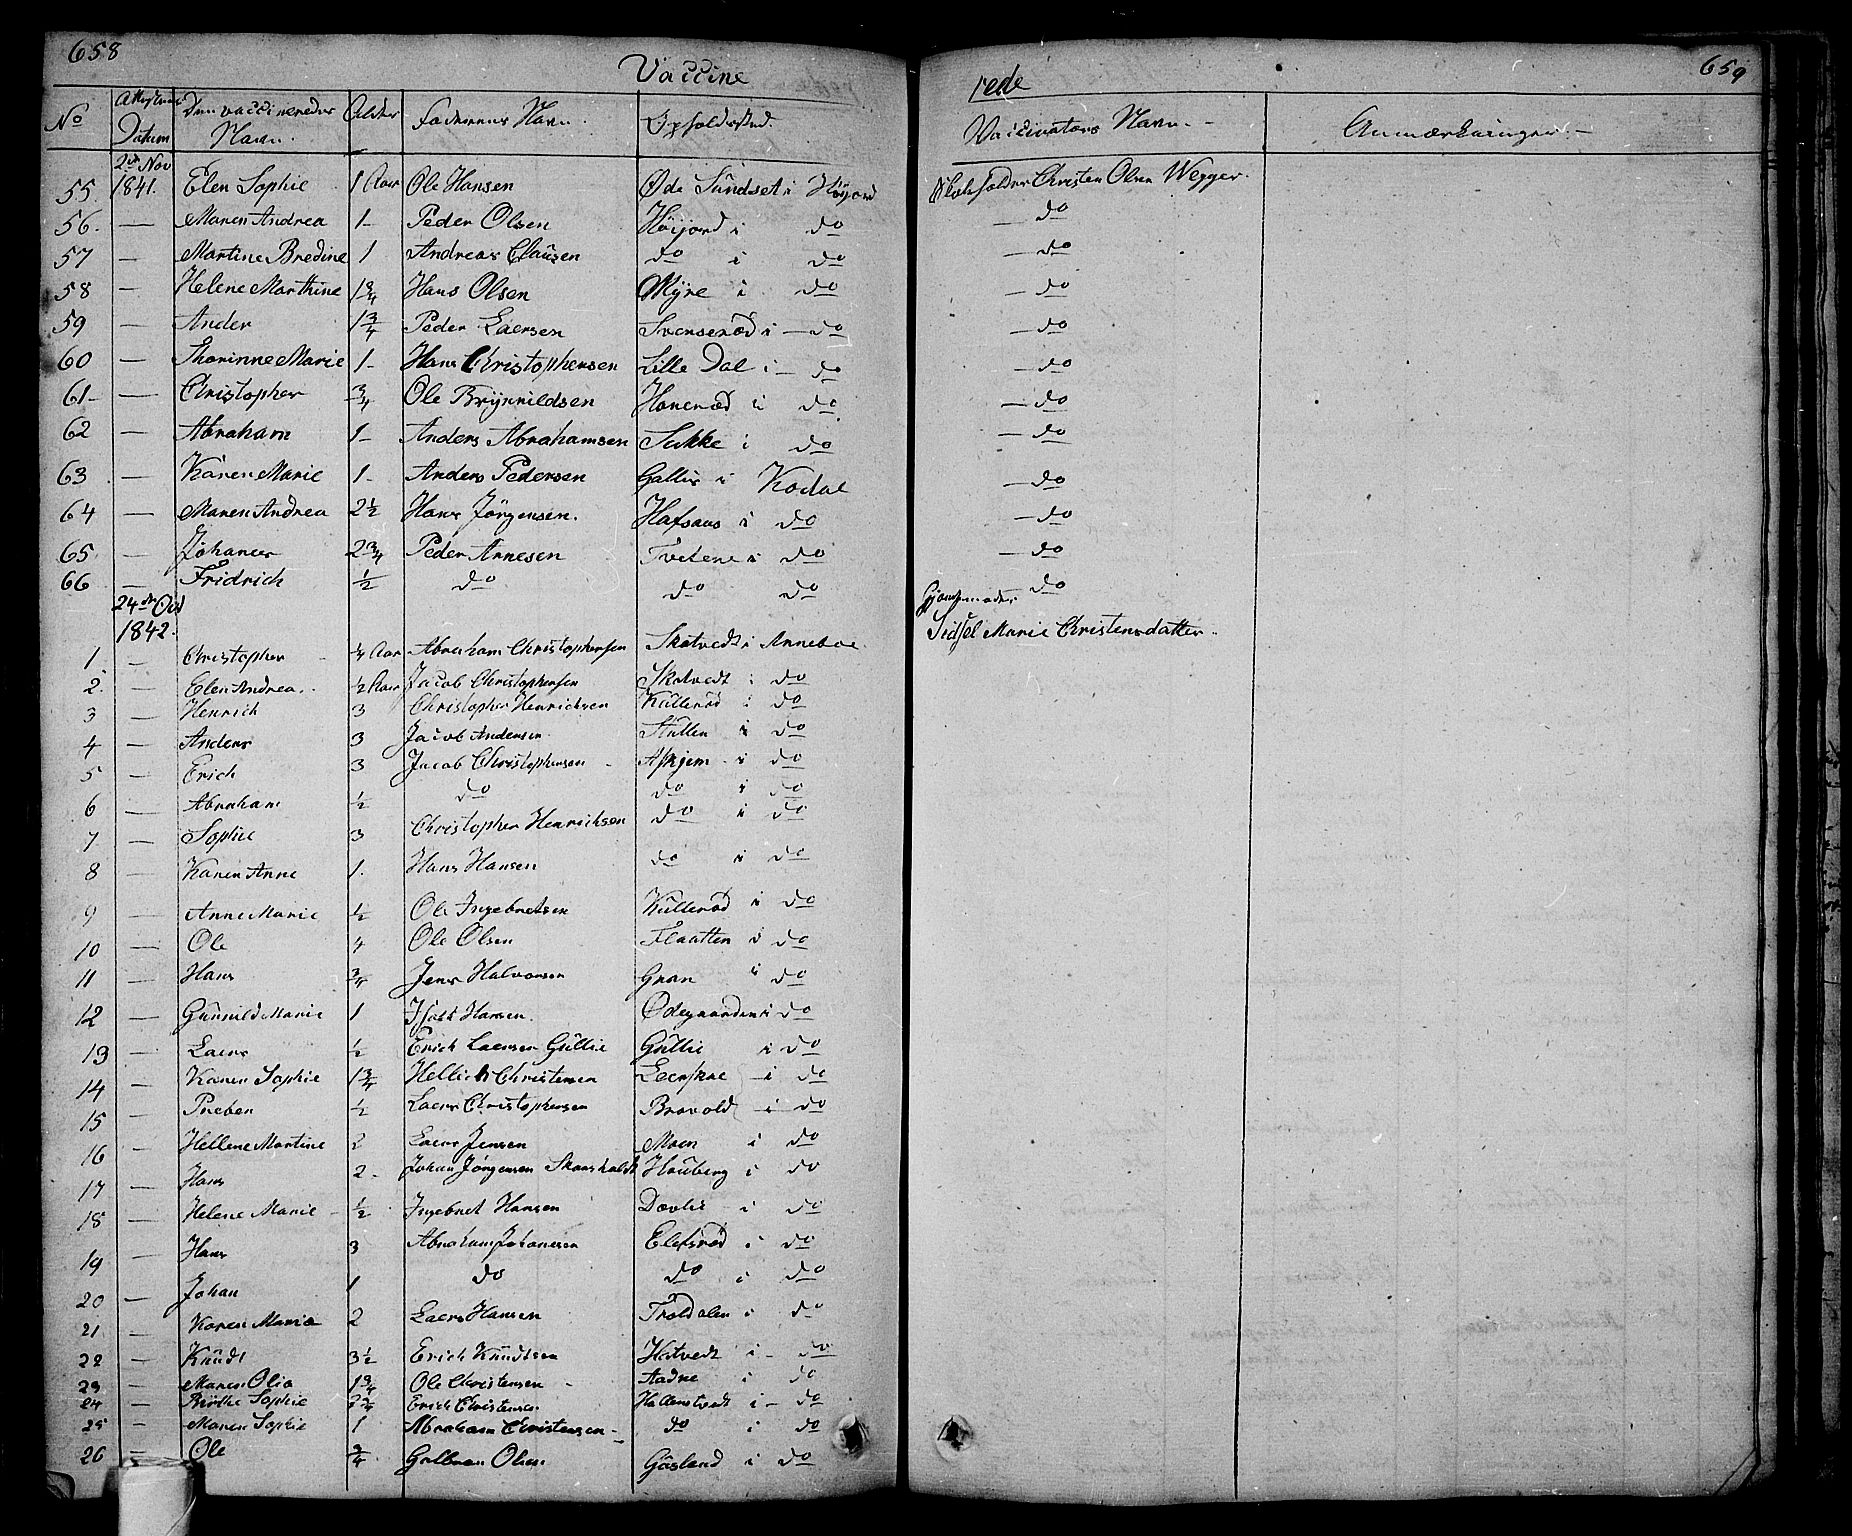 658
Vaccine
No Attestens Datum Den vaccineredes Navn. Alder Faderens Navn. Opholdssted.
2den Nov
55 1841. Elen Sophie 1 Aar Ole Hansen Øde Sundset i Höijord
56. — Maren Andrea 1- Peder Olsen Höijord i do
57 — Martine Bredine 1 Andreas Clausen do i do
58 — Helene Marthine 1 3/4 Hans Olsen Myre i do
59 — Ander 1 3/4 Peder Laersen Svenseröd i — do
60 — Thorinne Marie 1- Hans Christophersen Lille Dal i — do
61- — Christopher 3/4 Ole Brÿnnildsen Haneröd i do
62 — Abraham 1- Anders Abrahamsen Sukke i do
63 — Karen Marie 1- Anders Pedersen Gallis i Kodal
64 — Maren Andrea 2 1/2 Hans Jörgensen. Hafsaas i do
65 — Johanes 2 3/4 Peder Arnesen Tvetene i do
66 — Fridrich 1/2 do do do
24de Oct
1842.
1. — Christopher 1/4 Aar Abraham Christophersen Skatvedt i Anneboe.
2. — Elen Andrea. 1/2 Aar Jacob Christophersen Skatvedt i do
3 — Henrich 3 Christopher Henrichsen Kulleröd i do
4 — Anders 3 Jacob Andersen. Stullen i do
5 — Erich 3 Jacob Christophersen - Askjem i do
6 — Abraham 1/2 do do i do
7 — Sophie 3 Christopher Henrichsen do i do
8 — Karen Anne 1. Hans Hansen do i do
9 — Anne Marie 1/2 Ole Ingebretsen Kulleröd i do
10 — Ole 4 Ole Olsen Flaatten i do
11 — Hans 3/4 Jens Halvorsen Gran i do
12 — Gunnild Marie 1 Isak Hansen. Ødegaarden i do
13 — Laers 1/2 Erich Laersen Gullie Gullie i do
14 — Karen Sophie 1 3/4 Hellich Christensen Leerskae — i do
15 — Preben 1/2 Laers Christophersen Bravold — i do
16 — Hellene Martine 2 Laers Jensen Moen i do
17 — Hans 2. Johan Jörgensen Skarsholdt Hauberg i do
18 — Helene Marie - 1/2 Ingebret Hansen Dovlie i do
19 — Hans 3 Abraham Johanesen Elefsröd i do
20 — Johan 1 do do i do
21 — Karen Maria 2 Laers Hansen Troldalen i do
22 — Knudt 3 1/2 Erich Knudtsen Hatvedt i — do
23 — Maren Olia 1 3/4 Ole Christensen - Aadne i do
24 — Birthe Sophie 2 3/4 Erich Christensen Hallenstvedt i — do
25 — Maren Sophie 1 Abraham Christensen — do i do
26 — Ole 3/4 Gulbran Olsen Gåsland i do
659
rede
Vaccinatörs Navn. — Anmærkninger. —
Christen Olsen Wegger.
— do
— do
— do
— do
— do
— do
— do
— do
— do
— do
— do
Gjordemoder
Sidsel Marie Christensdatter.